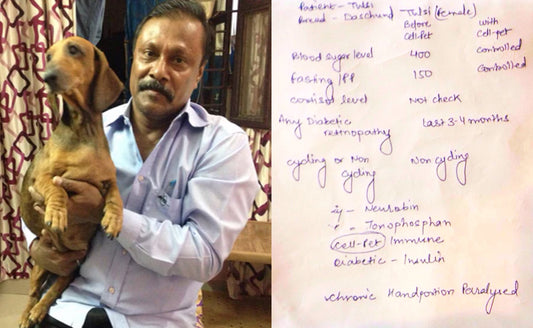 Patient - Tulsi
Breed - Daschund Tulsi (female)
Before Cell-Pet with Cell-pet
Blood sugar level 400 Controlled
fasting /PP 150 Controlled
cortisol level Not check
Any Diabetic retnopathy Last 3-4 months
cycling or Non cycling Non cycling
- Neurobin
- Tonophosphan
Cell-Pet Immune
Diabetic - Insulin
chronic Handportion Paralysed